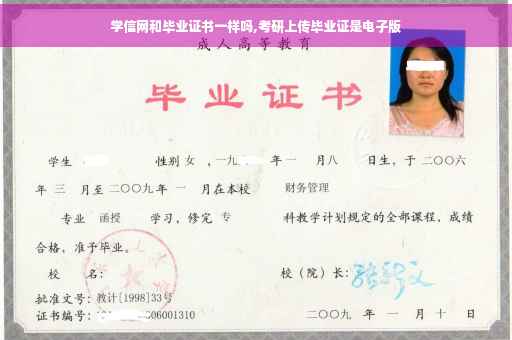 学信网和毕业证书一样吗,考研上传毕业证是电子版
成人高等教育
毕业证书
学生 性别 女 ,一九 年 一 月八 日生，于 二〇〇六
年 三 月至 二〇〇九年 一 月在本校 财务管理
专业 函授 学习，修完 专 科教学计划规定的全部课程，成绩
合格，准予毕业。
校 名： 校（院）长：
批准文号：教计[1998]33号
证书编号： 06001310 二〇〇九 年 一 月 十 日